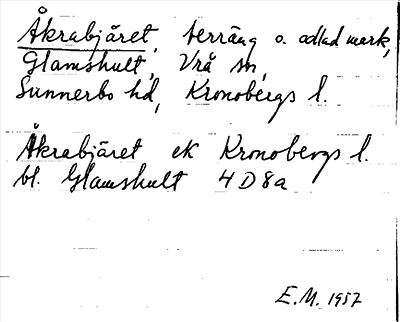 Åkrabjäret, terräng o. odlad mark,
Glamshult, Vrå sn,
Sunnerbo hd, Kronobergs l.
Åkrabjäret ek Kronobergs l.
bl. Glamshult 4D8a
E.M. 1957